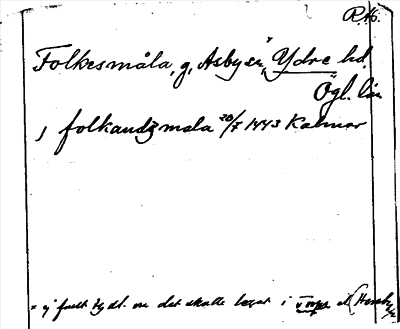 RA6.
Folkesmåla, g, Asby sn, Ydre hd.
Ögl. län
J folkandz mala 20/7 1443 Kalmar
= ej fullt tydl. om det skulle legat i